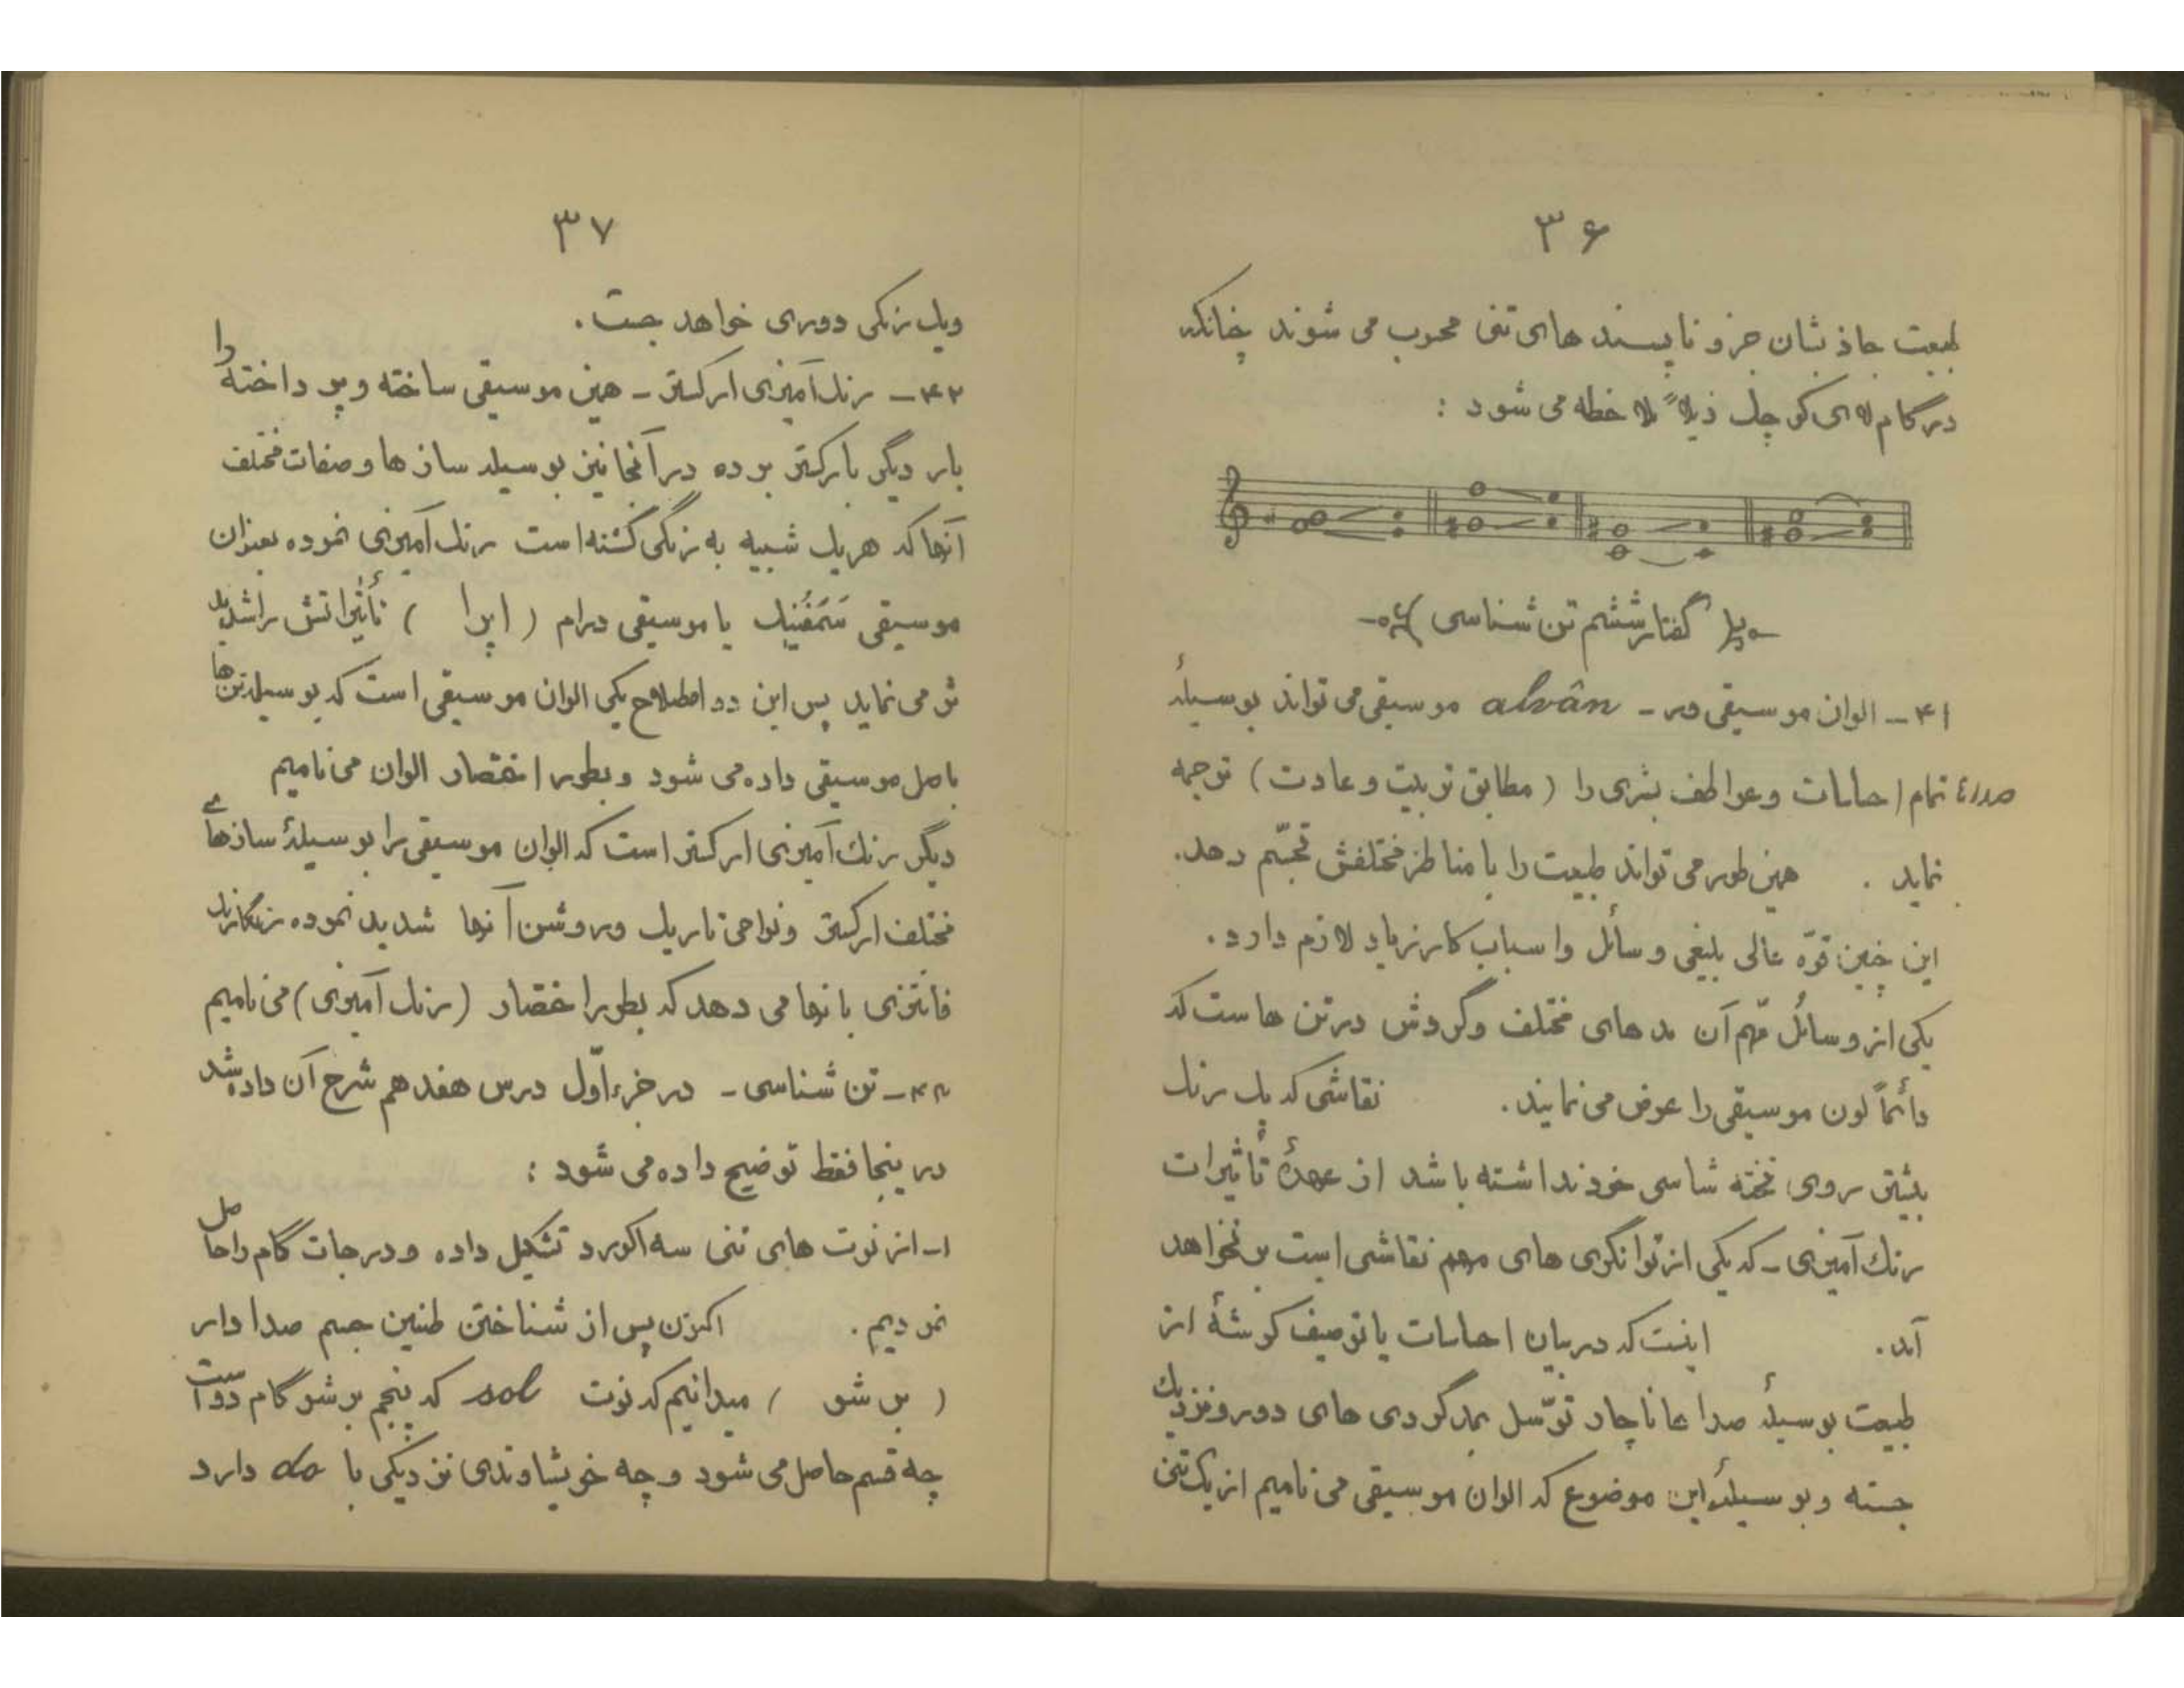 ۳۶
طبیعت جاذبشان جزو ناپسندهای تنی محسوب می شوند چنانکه
در گام لای کوچک ذیلاً ملاحظه می شود :
گفتار ششم تن شناسی
۴۱ – الوان موسیقی ور – alvân موسیقی می تواند بوسیلهٔ
صداء تمام احساسات و عواطف بشری را ( مطابق تربیت و عادت ) ترجمه
نماید . همین طور می تواند طبیعت را با مناظر مختلفش تجسّم دهد.
این چنین قوّه عالی بلیغی وسائل و اسباب کار زیاد لازم دارد .
یکی از وسائل مهم آن مدهای مختلف و گردش در تن هاست که
دائماً لون موسیقی را عوض می نمایند . نقاشی که یک رنگ
بیشتر روی تخته شاسی خود نداشته باشد از عهدهٔ تأثیرات
رنک آمیزی – که یکی از توانگری های مهم نقاشی است بر نخواهد
آمد. اینست که در بیان احساسات یا توصیف گوشهٔ از
طبیعت بوسیلهٔ صدا ها ناچار توّسل بمدگردی های دور و نزدیک
جسته و بوسیلهٔ این موضوع که الوان موسیقی می نامیم از یک تنی
۳۷
ویک رنگی دوری خواهد جست .
۴۲ – رنک آمیزی ارکستر – همین موسیقی ساخته و پرداخته را
بار دیگر بارکستر برده در آنجا نیز بوسیله سازها و صفات مختلف
آنها که هر یک شبیه به رنگی گشته است رنک آمیزی نموده بعنوان
موسیقی سَمفُنیک یا موسیقی درام ( اپرا ) تأثیراتش را شدید
تر می نماید پس این دو اصطلاح یکی الوان موسیقی است که بوسیله تن ها
باصل موسیقی داده می شود و بطور اختصار الوان می نامیم
دیگر رنک آمیزی ارکستر است که الوان موسیقی را بوسیلهٔ سازهای
مختلف ارکستر و نواحی تاریک و روشن آنها شدید نموده
فانتزی بانها می دهد که بطور اختصار (رنک آمیزی) می نامیم
۴۳ – تن شناسی – در جزء اوّل درس هفدهم شرح آن داده شد
در ینجا فقط توضیح داده می شود :
۱– از نوت های تنی سه آکورد تشکیل داده و درجات گام را حاصل
نمودیم . اکنون پس از شناختن طنین جسم صدا دار
( بر شو ) میدانیم که نوت sol که پنجم بر شو گام دو است
چه قسم حاصل می شود و چه خویشاوندی نزدیکی با do دارد